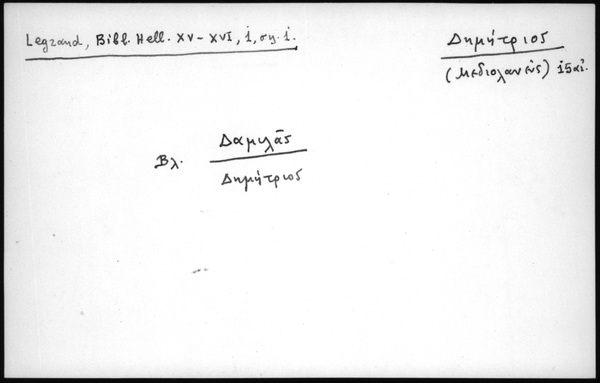 Legrand, Bibl. Hell. XV-XVI, 1, ση. 1.
Δημήτριος
(Μεδιολανεύς) 15 αἰ.
Βλ. Δαμιλᾶς
Δημήτριος